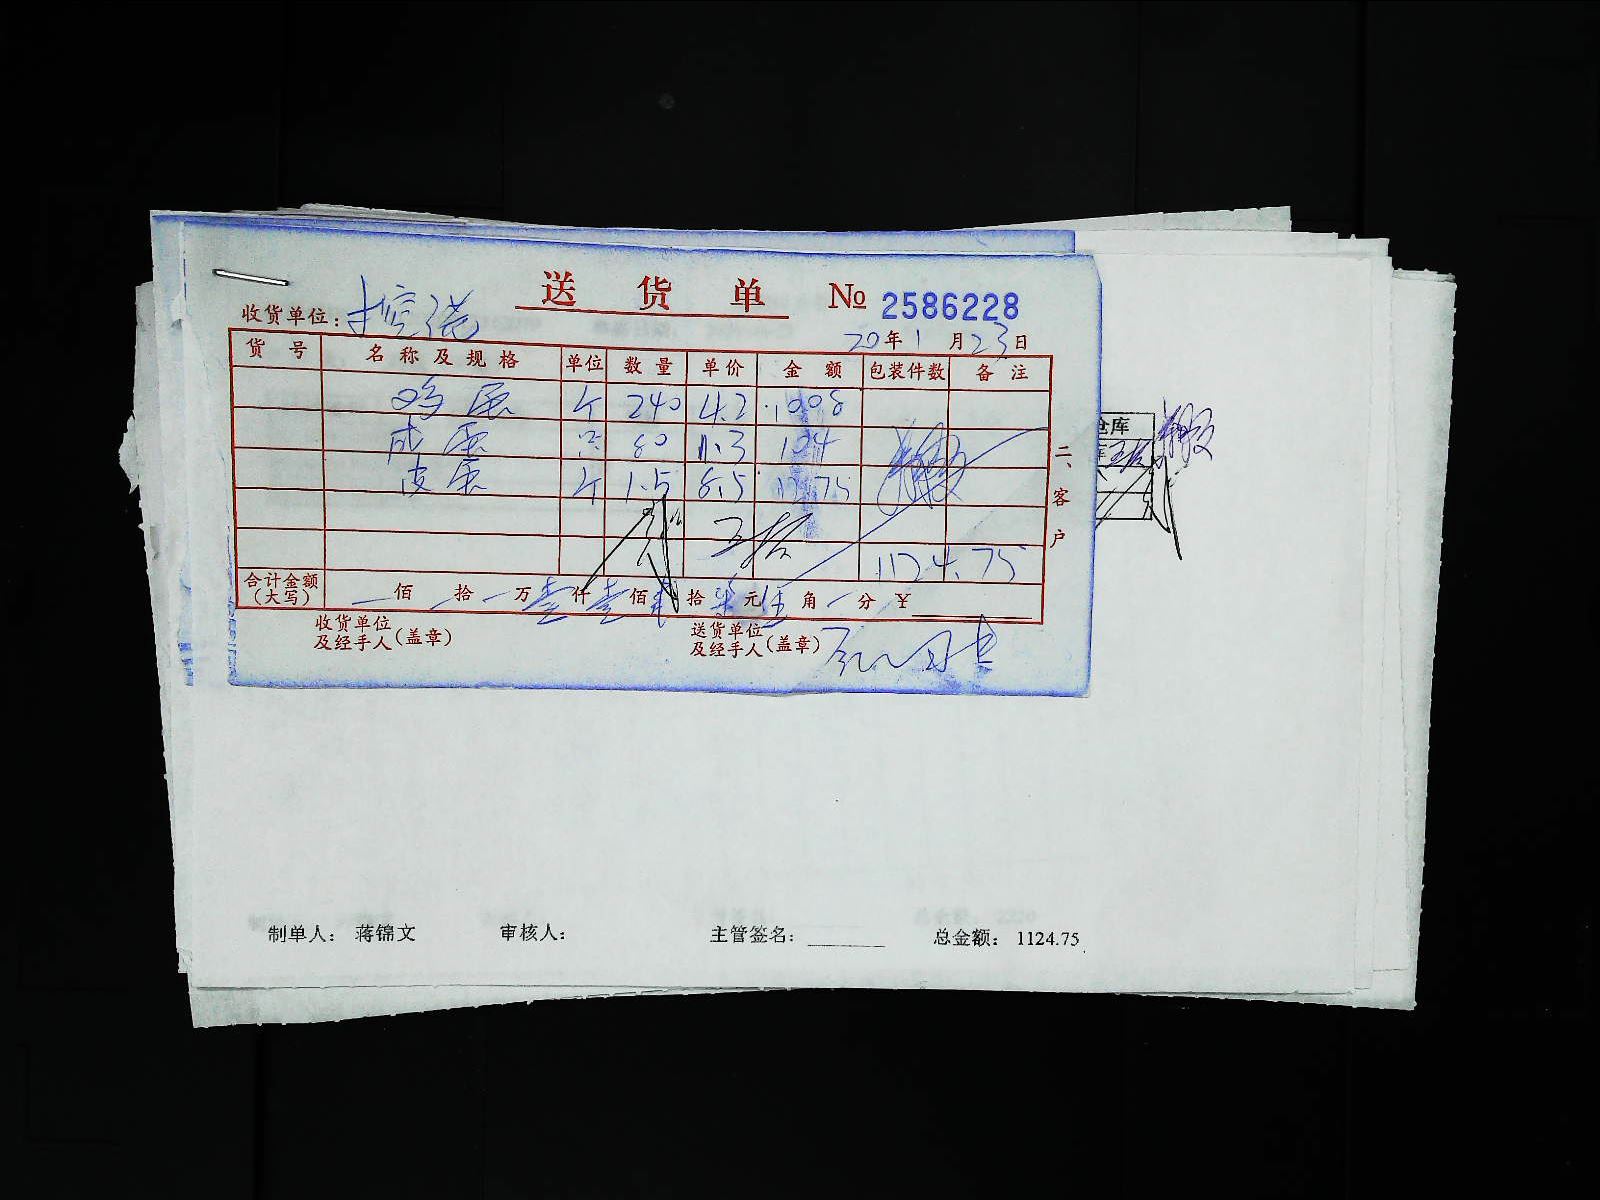 送货单 № 2586228
收货单位：控港
20年1月23日
货号 名称及规格 单位 数量 单价 金额 包装件数 备注
鸡蛋 斤 240 4.2 1008
咸蛋 只 80 1.3 104
皮蛋 斤 1.5 8.5 12.75
1124.75
合计金额（大写） 佰 拾 万 壹 仟 壹 佰 贰 拾 元 角 分 ¥
收货单位及经手人（盖章） 送货单位及经手人（盖章）
二、客户
仓库
制单人： 蒋锦文 审核人： 主管签名： 总金额： 1124.75